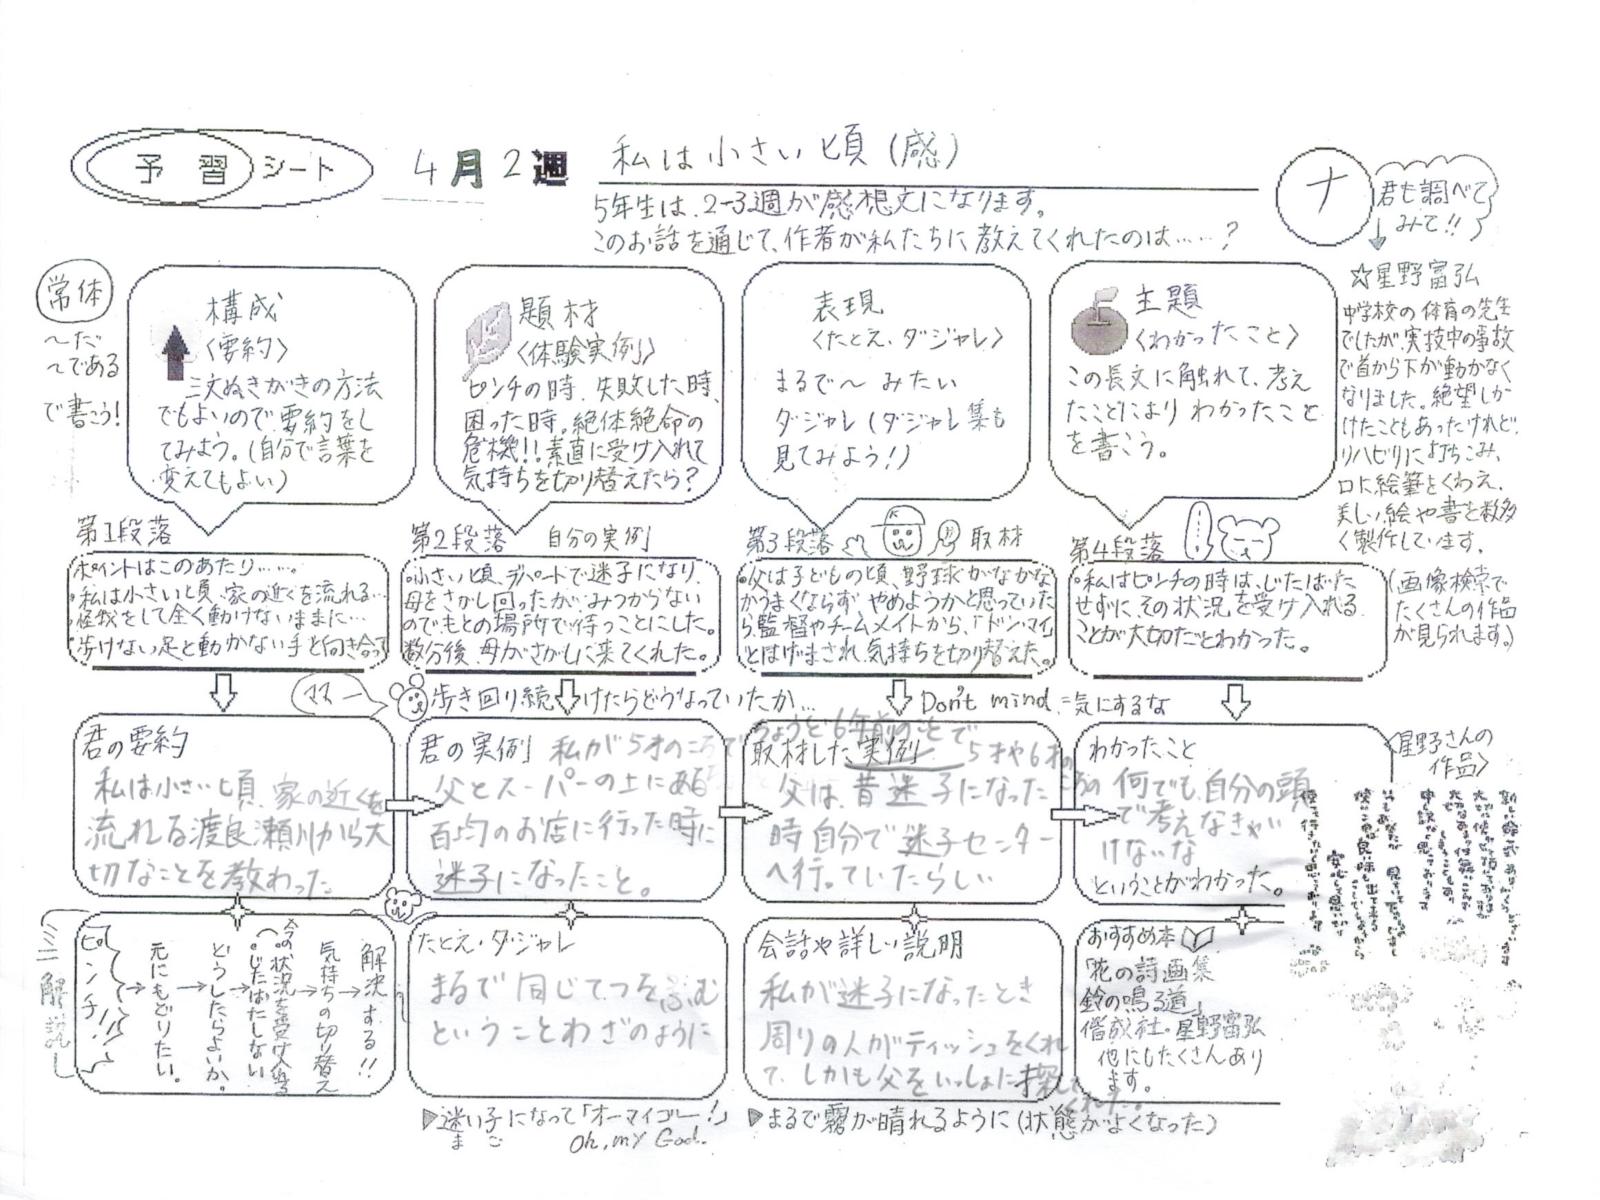 予習シート
4月2週
私は小さい頃(感)
5年生は、2-3週が感想文になります。
このお話を通じて、作者が私たちに教えてくれたのは……?
ナ
君も調べて
みて!!
常体
〜だ
〜である
で書こう!
構成
〈要約〉
三文ぬきがきの方法
でもよいので要約をし
てみよう。(自分で言葉を
変えてもよい)
題材
〈体験実例〉
ピンチの時、失敗した時、
困った時。絶体絶命の
危機!!素直に受け入れて
気持ちを切り替えたら?
表現
〈たとえ、ダジャレ〉
まるで〜みたい
ダジャレ(ダジャレ集も
見てみよう!)
主題
〈わかったこと〉
この長文に触れて、考え
たことによりわかったこと
を書こう。
☆星野富弘
中学校の体育の先生
でしたが実技中の事故
で首から下が動かなく
なりました。絶望しか
けたこともあったけれど、
リハビリに打ちこみ、
口に絵筆をくわえ、
美しい絵や書を数多
く製作しています。
(画像検索で
たくさんの作品
が見られます。)
第1段落
ポイントはこのあたり……。
・私は小さい頃、家の近くを流れる…
・怪我をして全く動けないままに…
・歩けない足と動かない手と向き合って
第2段落 自分の実例
・小さい頃、デパートで迷子になり、
母をさがし回ったが、みつからない
のでもとの場所で待つことにした。
数分後、母がさがしに来てくれた。
第3段落 取材
・父は子どもの頃、野球がなかな
かうまくならず、やめようかと思っていた
ら、監督やチームメイトから、「ドン・マイ」
とはげまされ、気持ちを切り替えた。
第4段落
・私はピンチの時は、じたばた
せずに、その状況を受け入れる
ことが大切だとわかった。
ママー
歩き回り続けたらどうなっていたか…
Don't mind.=気にするな
君の要約
私は小さい頃、家の近くを
流れる渡良瀬川から大
切なことを教わった
君の実例 私が5才のころで
父とスーパーの上にある
百均のお店に行った時に
迷子になったこと。
ちょうど6年前のことで
取材した実例 5才や6才の
父は、昔迷子になった
時自分で迷子センター
へ行っていたらしい
わかったこと
何でも、自分の頭
で考えなきゃい
けないな
ということがわかった。
〈星野さんの
作品〉
ミニ解説
ピンチ!!!
元にもどりたい。
どうしたらよいか。
今の状況を受け入れる
(じたばたしない
気持ちの切り替え
解決する!!
たとえ・ダジャレ
まるで同じてつをふむ
ということわざのように
会話や詳しい説明
私が迷子になったとき
周りの人がティッシュをくれ
て、しかも父をいっしょに探して
くれた。
おすすめ本
「花の詩画集
鈴の鳴る道」
偕成社・星野富弘
他にもたくさんあり
ます。
▷迷い子になって「オーマイゴー!」
まご
Oh, my God.
▷まるで霧が晴れるように(状態がよくなった)